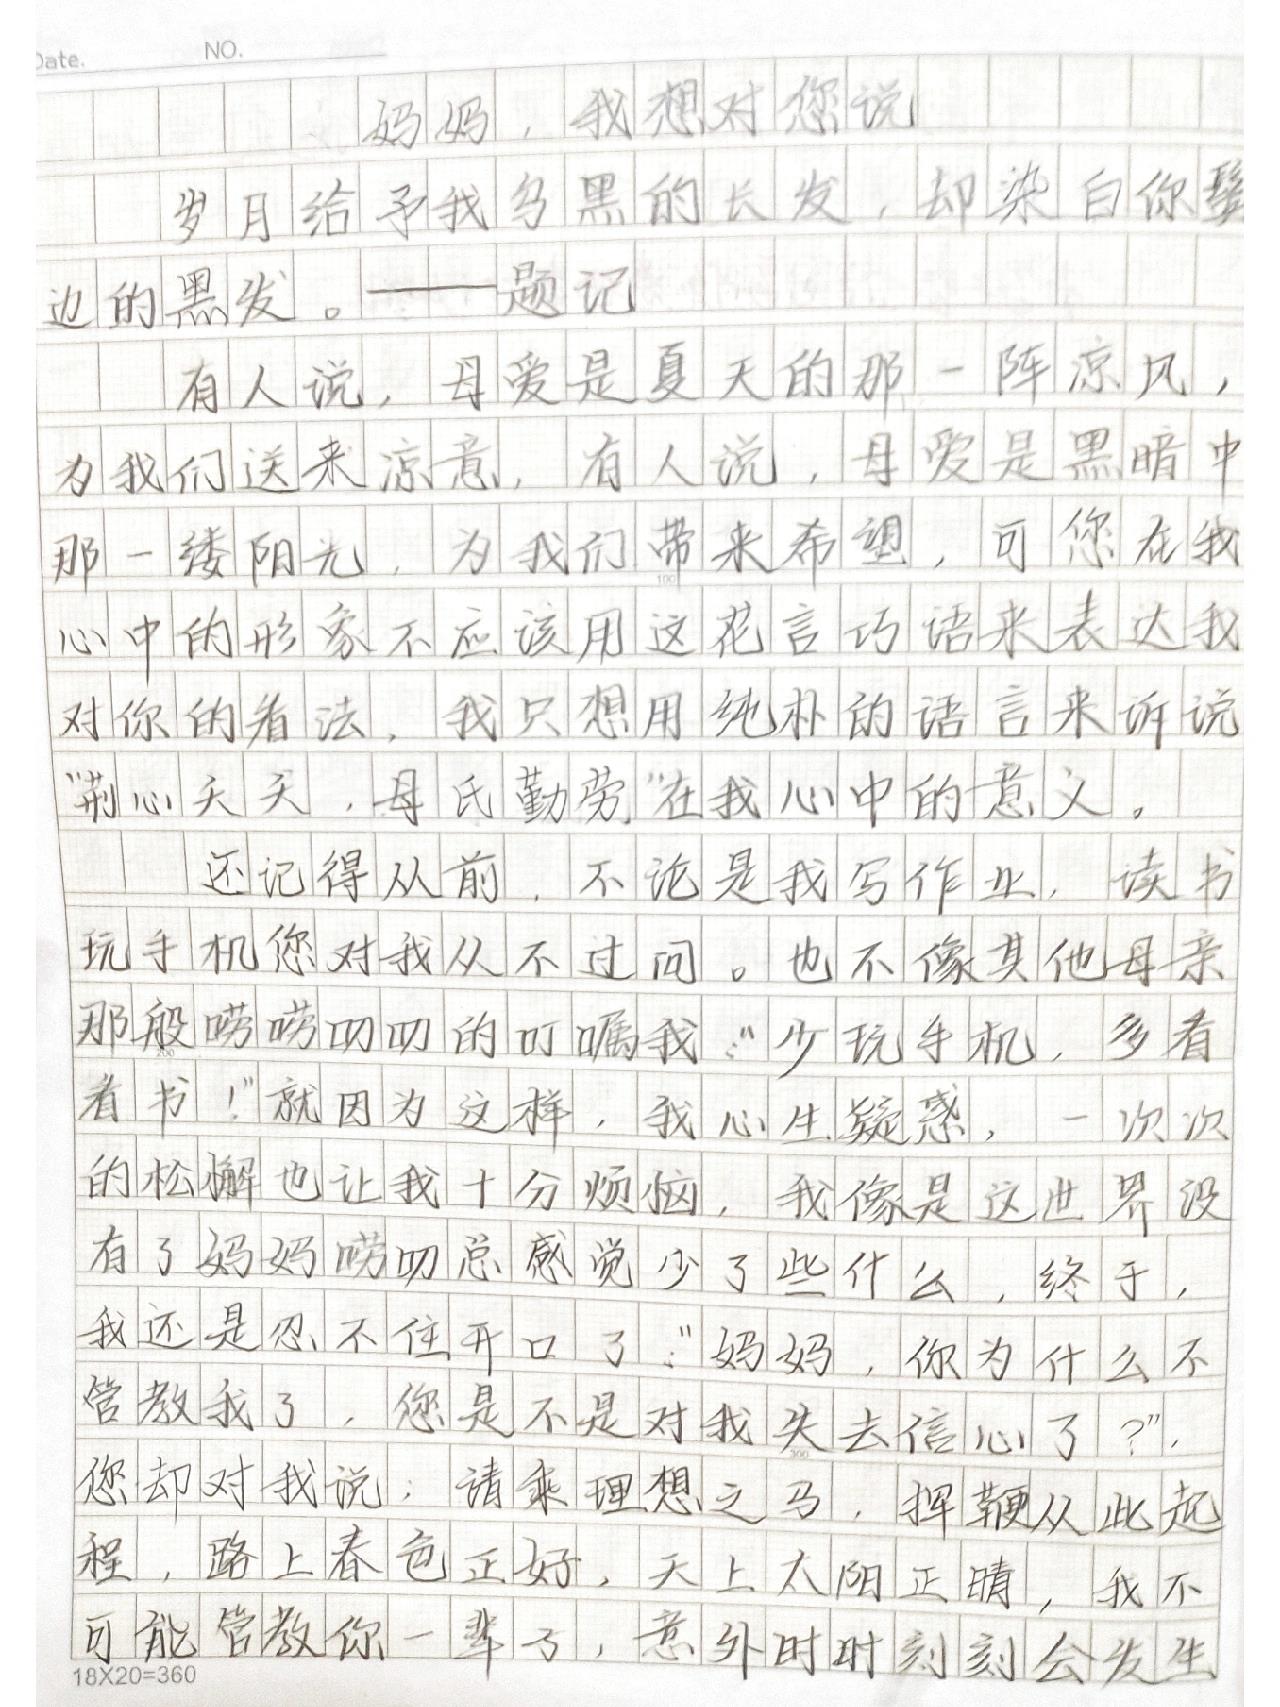 Date.
NO.
妈妈，我想对您说
岁月给予我乌黑的长发，却染白你鬓
边的黑发。——题记
有人说，母爱是夏天的那一阵凉风，
为我们送来凉意，有人说，母爱是黑暗中
那一缕阳光，为我们带来希望，可您在我
100
心中的形象不应该用这花言巧语来表达我
对你的看法，我只想用纯朴的语言来诉说
“荆心天天，母氏勤劳”在我心中的意义。
还记得从前，不论是我写作业，读书
玩手机您对我从不过问。也不像其他母亲
那般唠唠叨叨的叮嘱我：“少玩手机，多看
200
看书！”就因为这样，我心生疑惑，一次次
的松懈也让我十分烦恼，我像是这世界没
有了妈妈唠叨总感觉少了些什么，终于，
我还是忍不住开口了：“妈妈，你为什么不
管教我了，您是不是对我失去信心了？”，
300
您却对我说：请乘理想之马，挥鞭从此起
程，路上春色正好，天上太阳正晴，我不
可能管教你一辈子，意外时时刻刻会发生
18X20=360